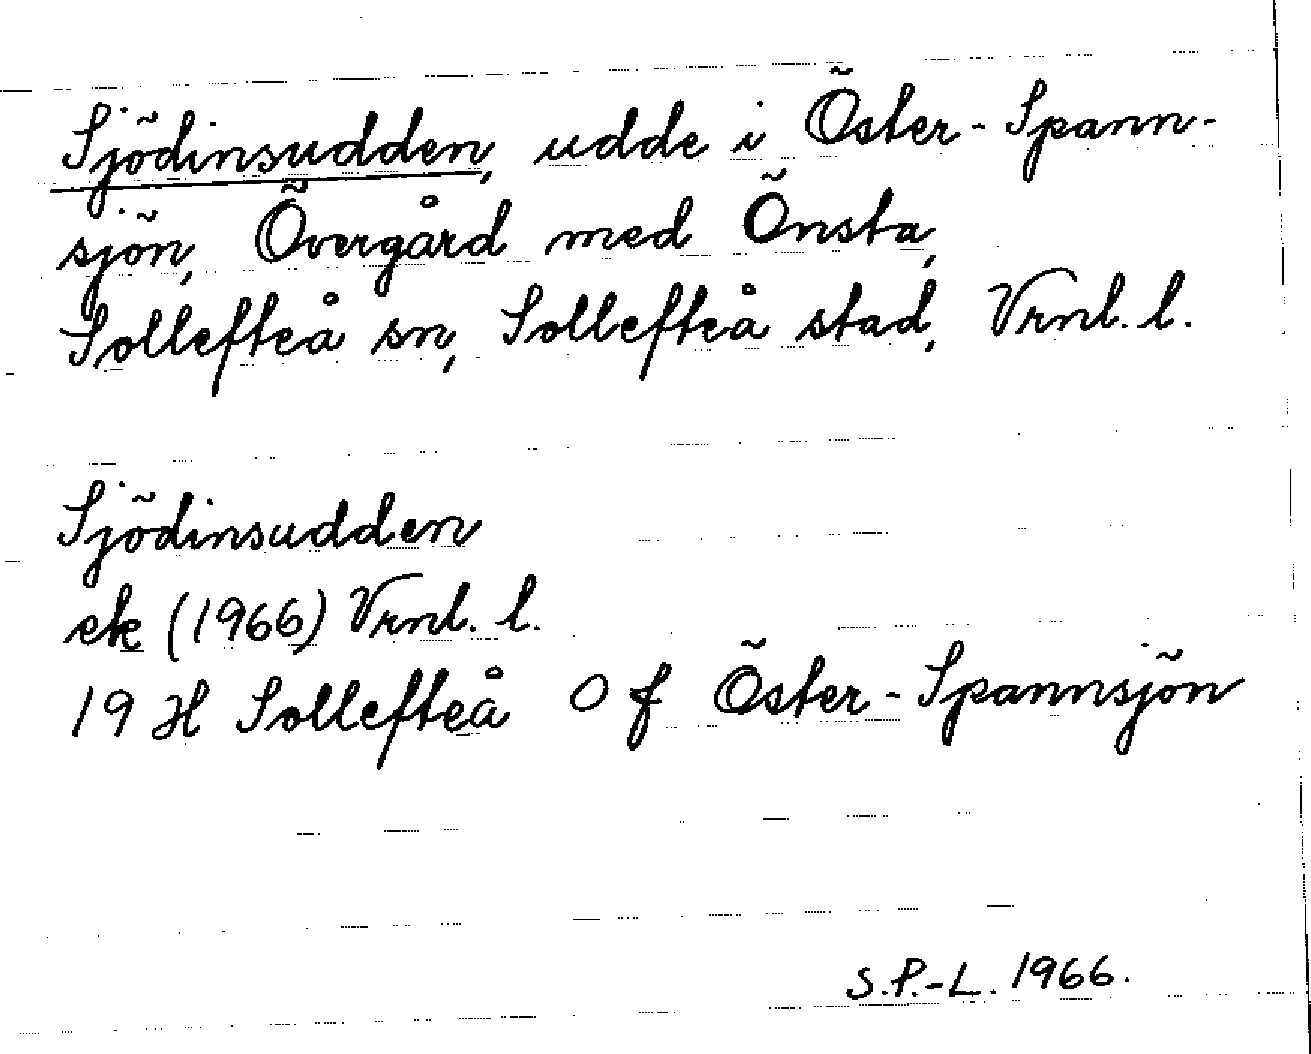 Sjödinsudden, udde i Öster-Spann-
sjön, Övergård med Önsta,
Sollefteå sn, Sollefteå stad, Vrnl. l.
Sjödinsudden
ek (1966) Vrnl. l.
19 H Sollefteå 0 f Öster-Spannsjön
S.P.-L. 1966.